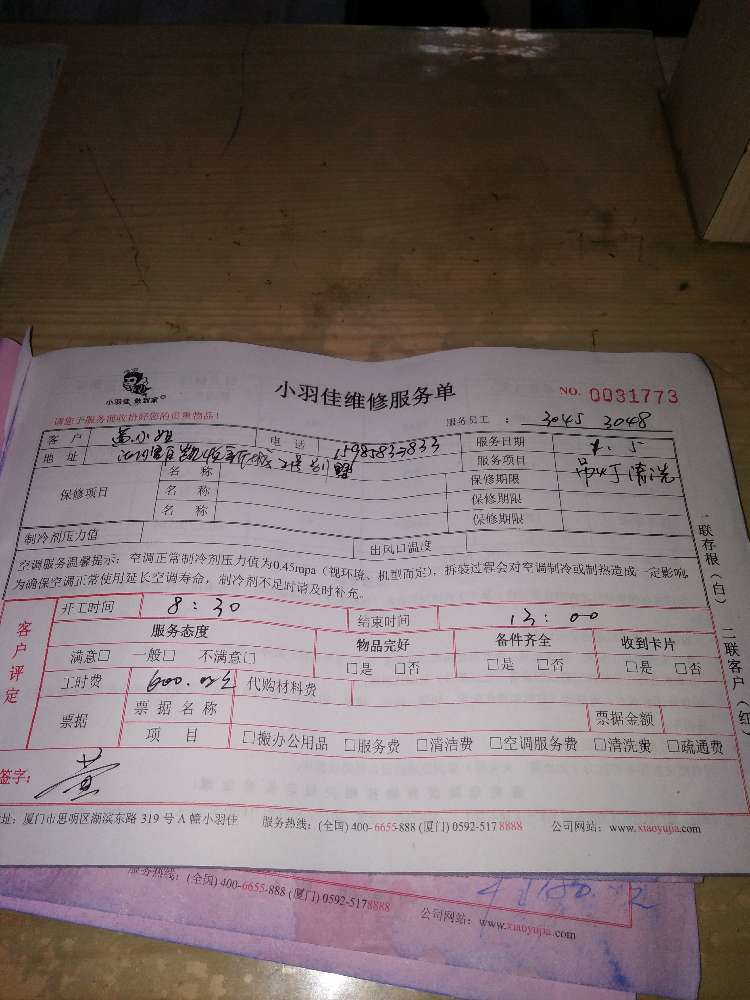 小羽佳 做到家
小羽佳维修服务单
NO. 0031773
请您于服务前收拾好您的贵重物品!
服务员工 : 3045 3048
客户 黄小姐 电话 服务日期
地址 服务项目 吊灯清洗
保修项目 名称 保修期限
名称 保修期限
名称 保修期限
制冷剂压力值 出风口温度
空调服务温馨提示:空调正常制冷剂压力值为0.45mpa(视环境、机型而定),拆装过程会对空调制冷或制热造成一定影响,
为确保空调正常使用延长空调寿命,制冷剂不足时请及时补充。
一联存根(白) 二联客户(红)
客户评定
开工时间 8:30 结束时间 13:00
服务态度 物品完好 备件齐全 收到卡片
满意□ 一般□ 不满意□ □是 □否 □是 □否 □是 □否
工时费 600. 代购材料费
票据 票据名称 票据金额
项目 □搬办公用品 □服务费 □清洁费 □空调服务费 □清洗费 □疏通费
签字: 黄
址:厦门市思明区湖滨东路 319 号 A 幢小羽佳 服务热线:(全国) 400-6655-888 (厦门) 0592-517 8888 公司网站:www.xiaoyujia.com
服务热线:(全国) 400-6655-888 (厦门) 0592-5178888 公司网站:www.xiaoyujia.com